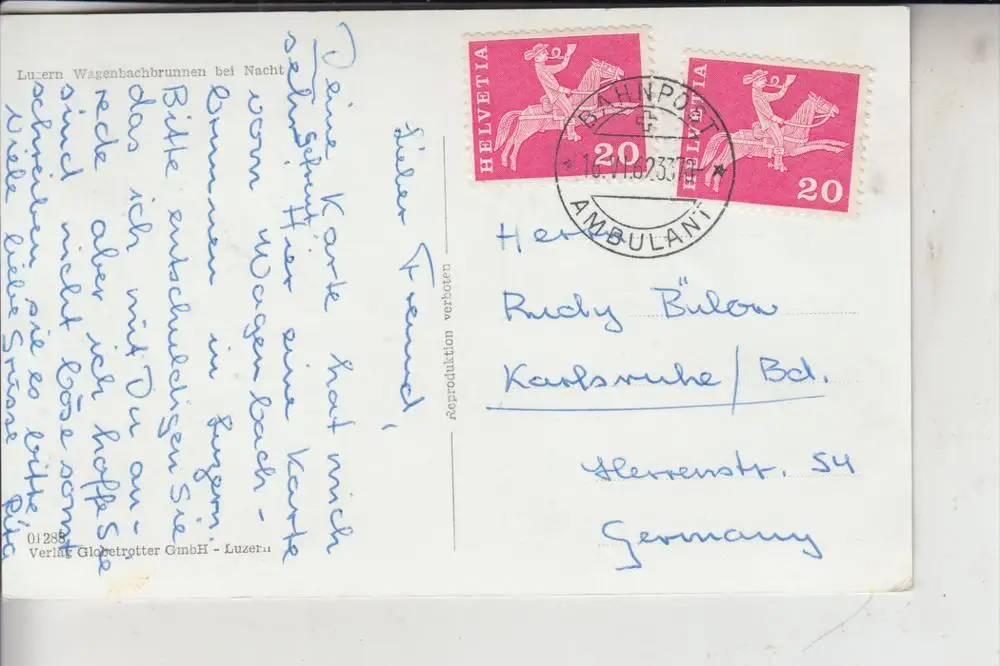 Luzern Wagenbachbrunnen bei Nacht
Lieber Freund,
Deine Karte hat mich
sehr gefreut. Hier eine Karte
vom Wagenbach-
brunnen in Luzern.
Bitte entschuldigen Sie
das ich mit Du an-
rede aber ich hoffe Sie
sind nicht böse sonst
schreiben sie es bitte
Viele liebe Grüsse Rita
01288
Verlag Globetrotter GmbH - Luzern
Reproduktion verboten
HELVETIA
20
HELVETIA
20
BAHNPOST
16.VI.62
AMBULANT
Herrn
Rudy Bülow
Karlsruhe/Bd.
Herrenstr. 54
Germany